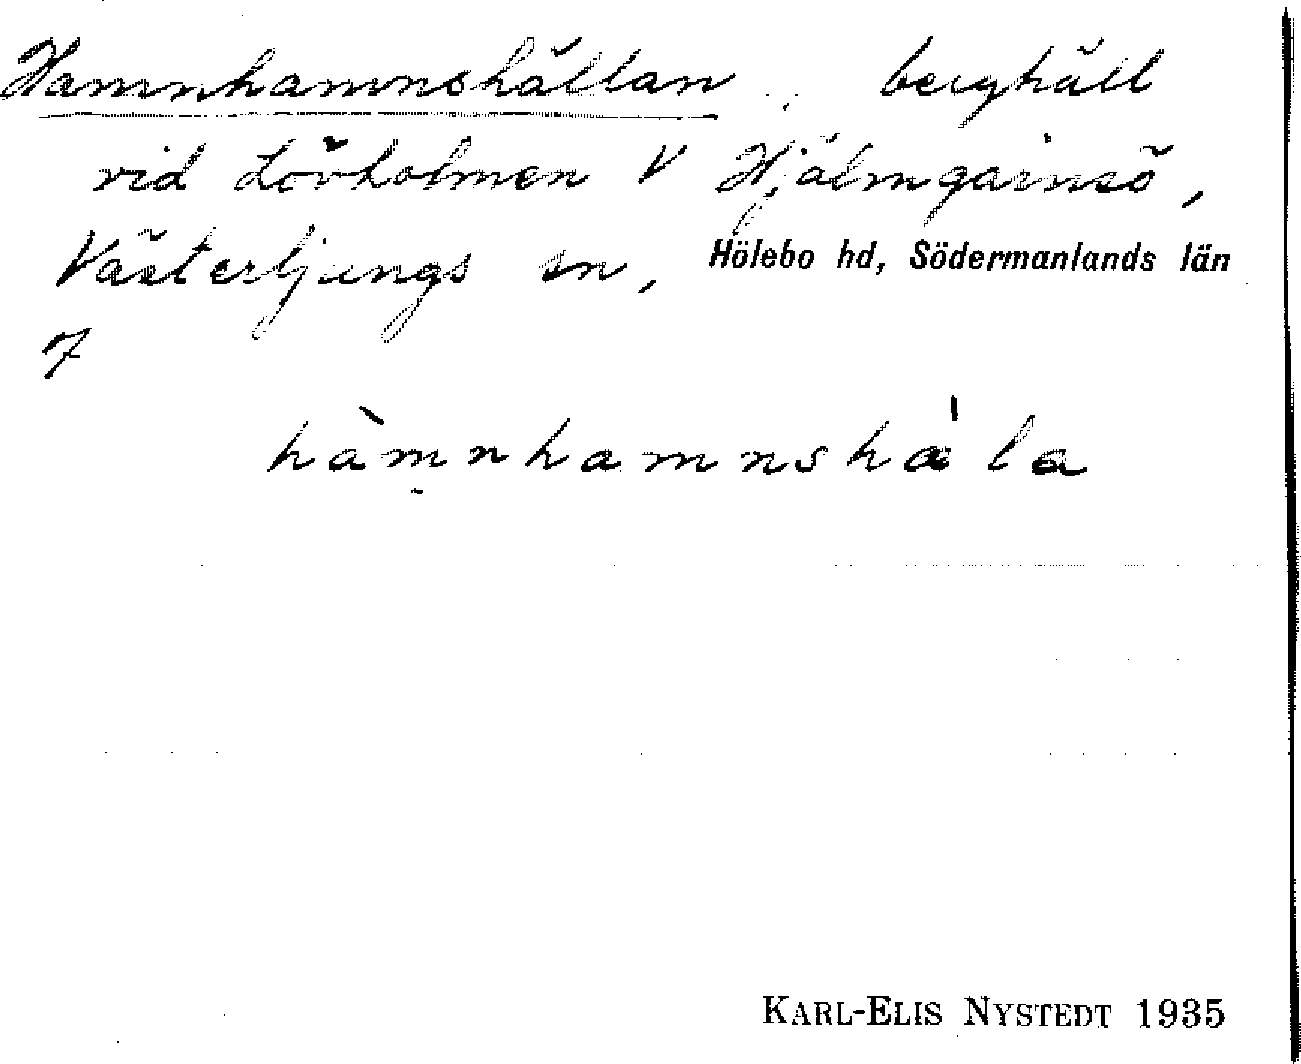 Hamnhamnshällan, berghäll
vid Lövholmen V Hjälmgarnsö,
Västerljungs sn, Hölebo hd, Södermanlands län
7
hàmnhamnshæ̀la
KARL-ELIS NYSTEDT 1935